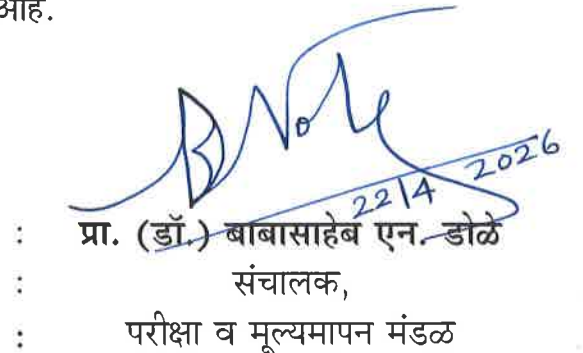 आहे.
22/4 2026
: प्रा. (डॉ.) बाबासाहेब एन. डोळे
: संचालक,
: परीक्षा व मूल्यमापन मंडळ